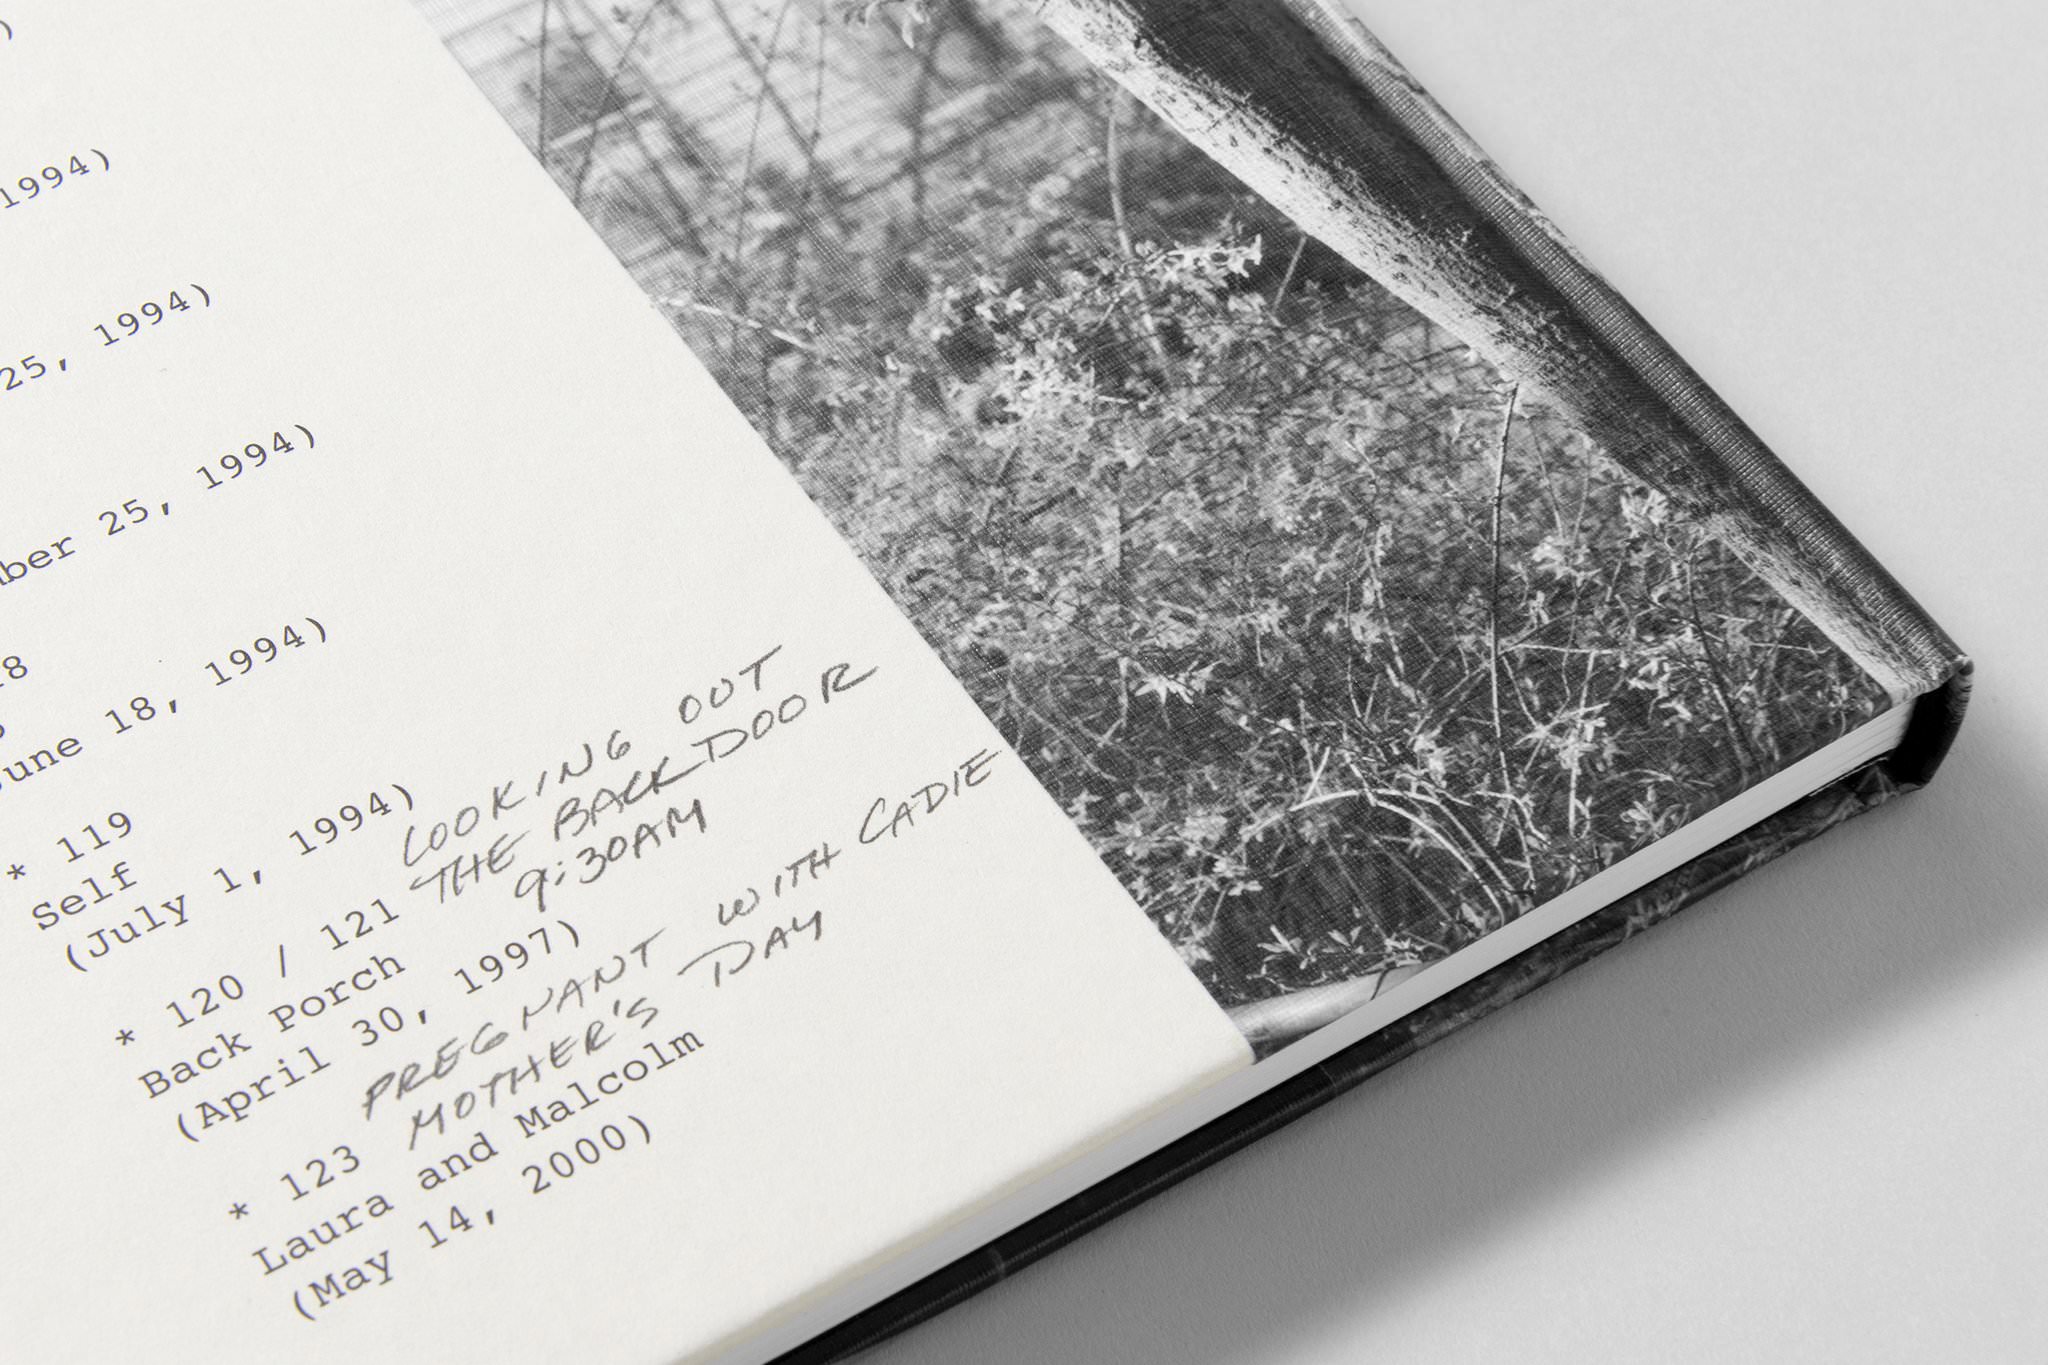 1994)
25, 1994)
25, 1994)
June 18, 1994)
* 119
Self
(July 1, 1994)
LOOKING OUT
THE BACK DOOR
9:30AM
* 120 / 121
Back Porch
(April 30, 1997)
PREGNANT WITH CADIE
MOTHER'S DAY
* 123
Laura and Malcolm
(May 14, 2000)